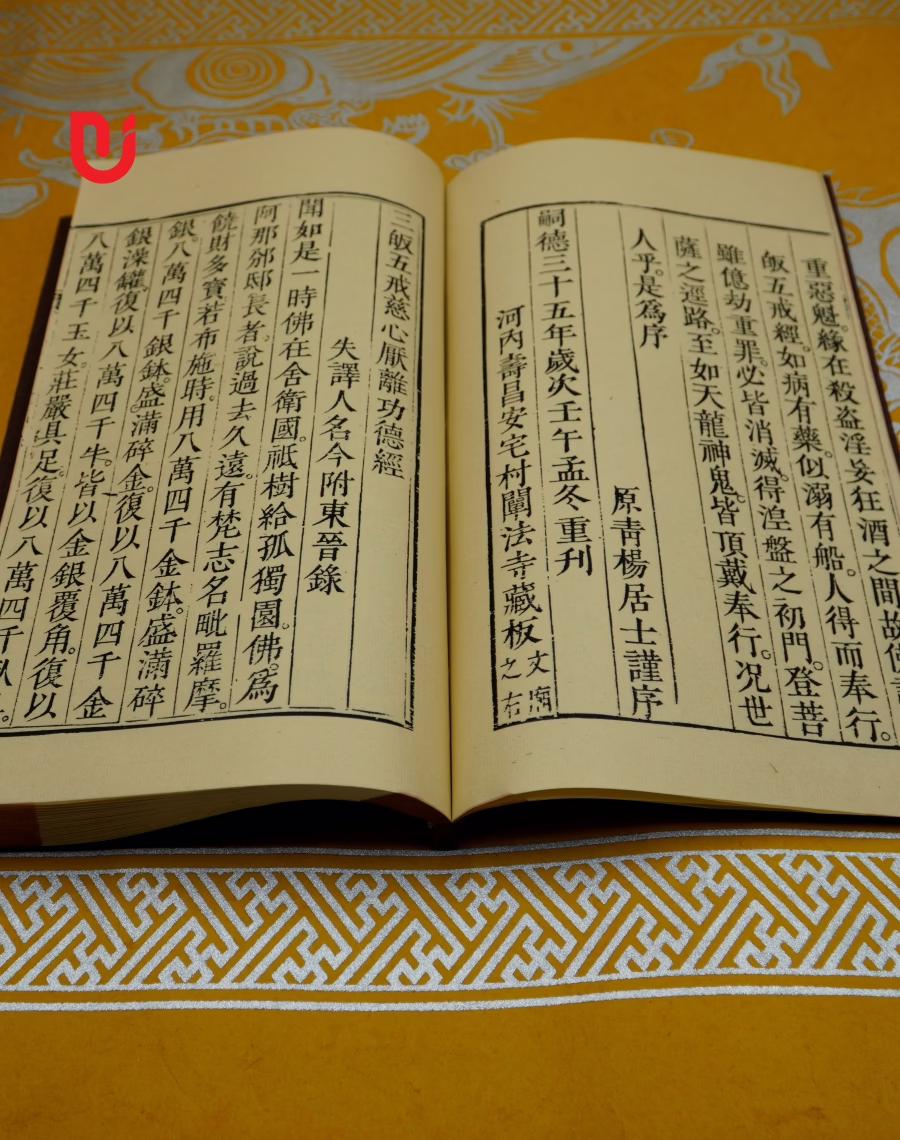 重惡魁。緣在殺盗淫妄狂酒之間故佛
皈五戒經。如病有藥。似溺有船。人得而奉行。
雖億劫重罪。必皆消滅。得湼盤之初門。登菩
薩之逕路。至如天龍神鬼。皆頂戴奉行。况世
人乎。是爲序
原靑楊居士謹序
嗣德三十五年歲次壬午孟冬重刋
河內壽昌安宅村闡法寺藏板文廟之右
三皈五戒慈心厭離功德經
失譯人名今附東晉錄
聞如是一時佛在舍衛國。祇樹給孤獨園。佛。爲
阿那邠邸長者。說過去久遠。有梵志名毗羅摩。
饒財多寳。若布施時。用八萬四千金鉢。盛滿碎
銀。八萬四千銀鉢。盛滿碎金。復以八萬四千金
銀澡罐。復以八萬四千牛。皆以金銀覆角。復以
八萬四千玉女。莊嚴具足。復以八萬四千